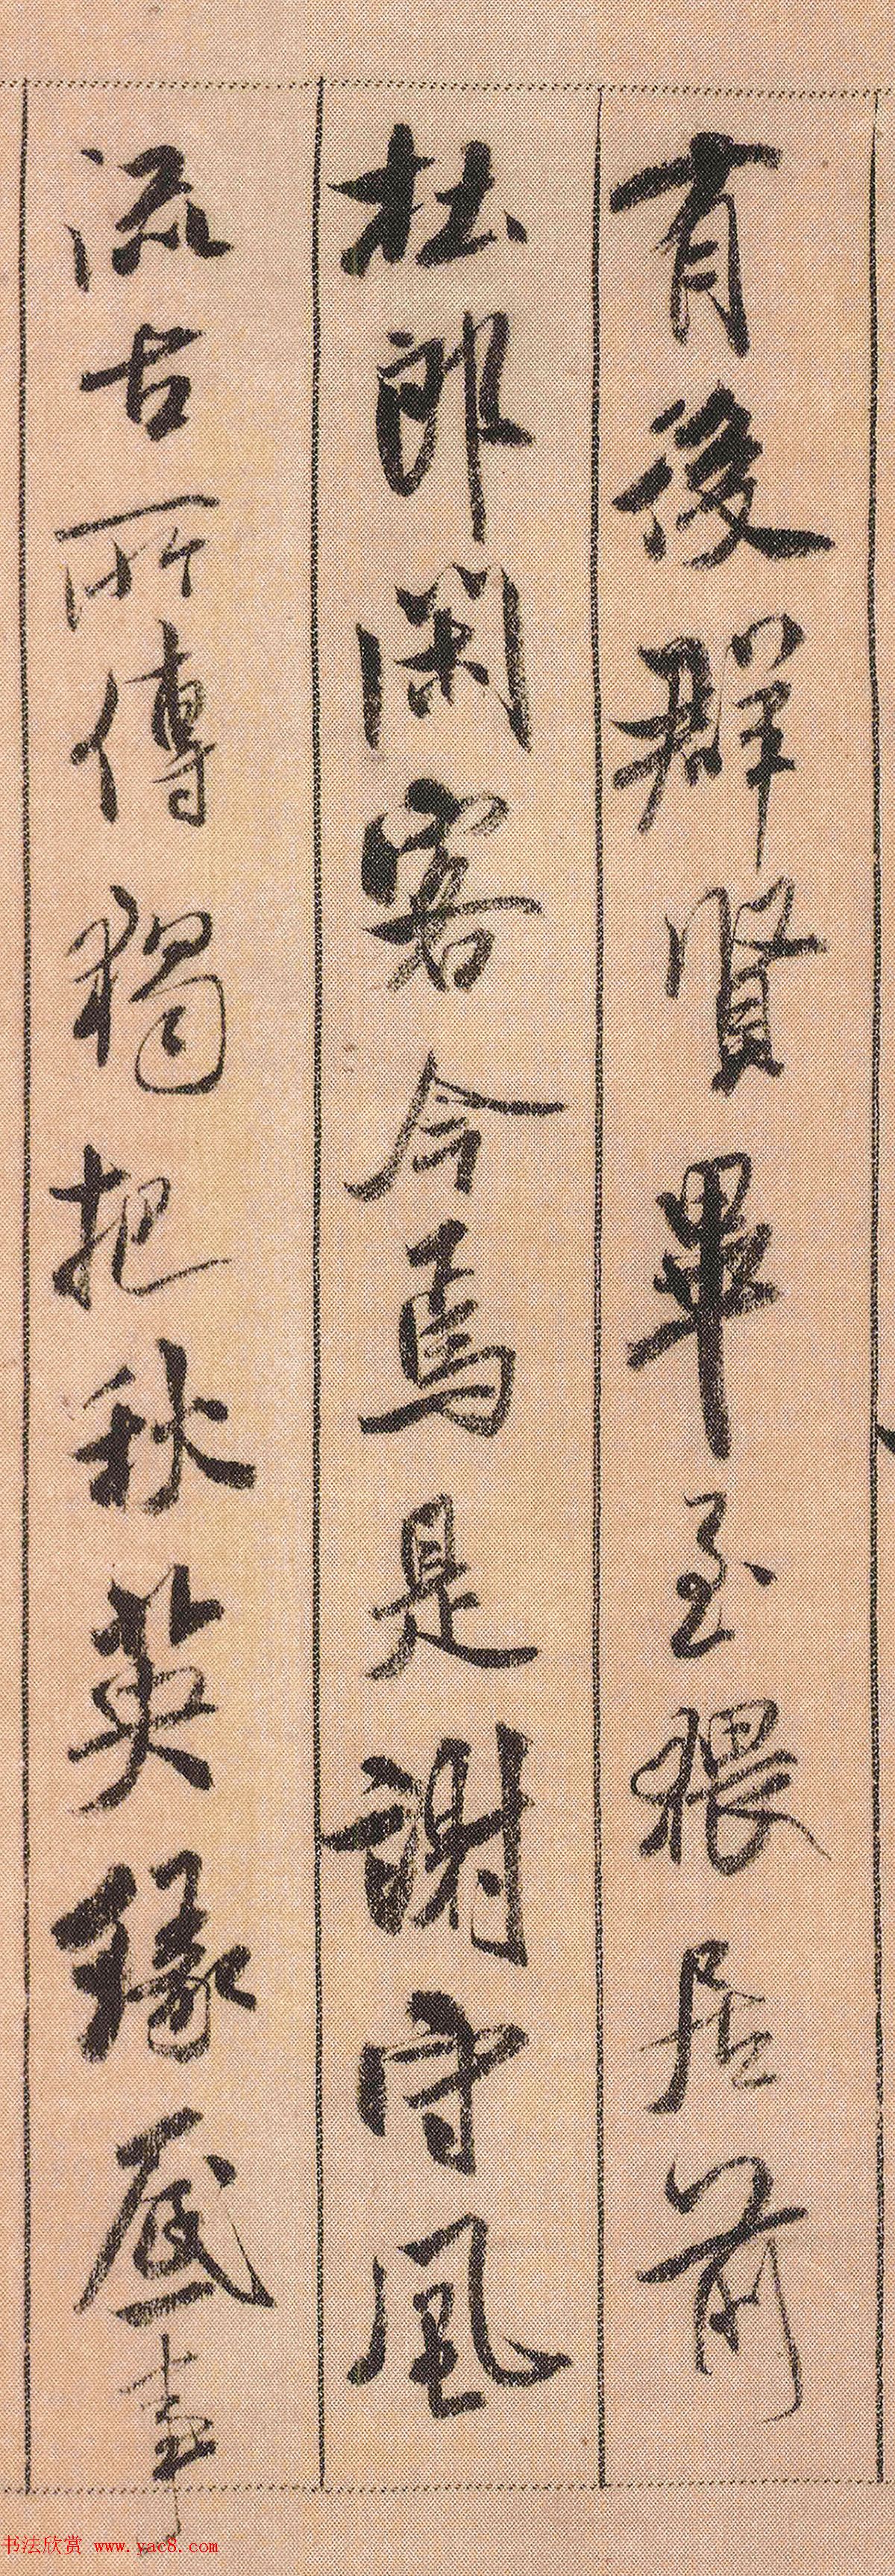 有後群賢畢至猥居前
杜郎閑客今焉是謝守風
流古所傳獨把秋英緣底事
书法欣赏 www.yac8.com